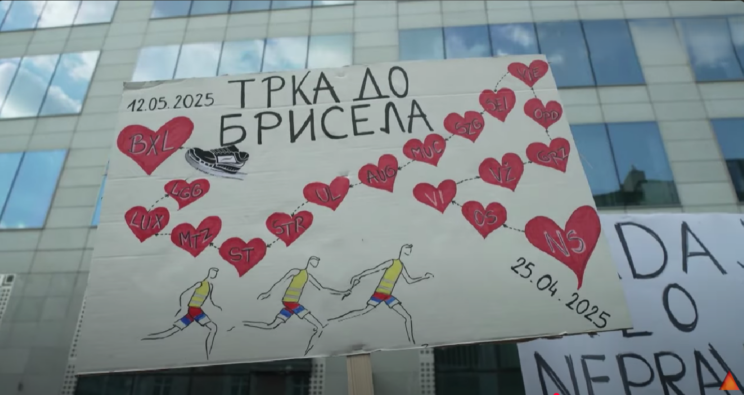 12.05.2025
ТРКА ДО
БРИСЕЛА
BXL
LGG
LUX
MTZ
ST
STR
UL
AUG
MUC
SZG
BEL
GRZ
VZ
VI
DS
NS
25.04.2025
DA
LO
NEPRAV